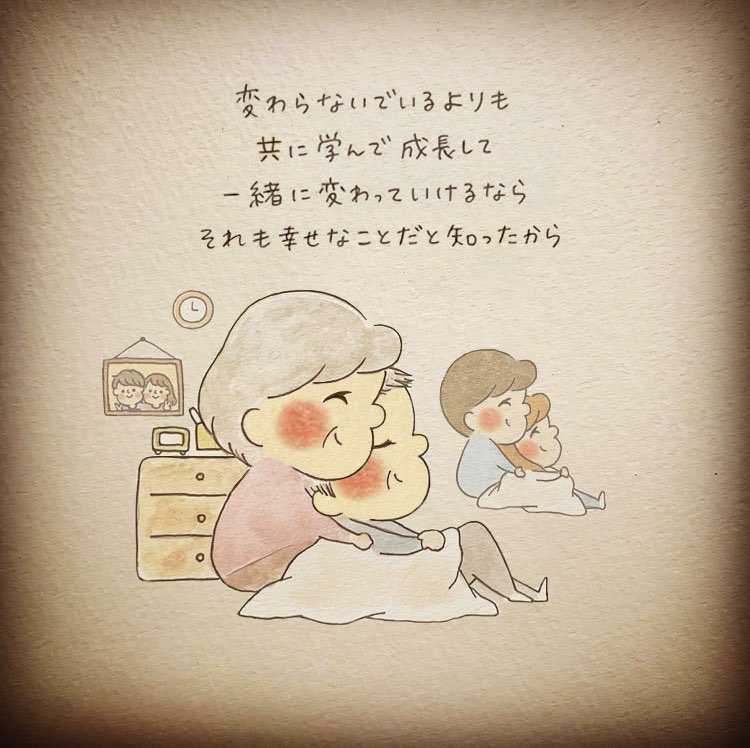 変わらないでいるよりも
共に学んで成長して
一緒に変わっていけるなら
それも幸せなことだと知ったから